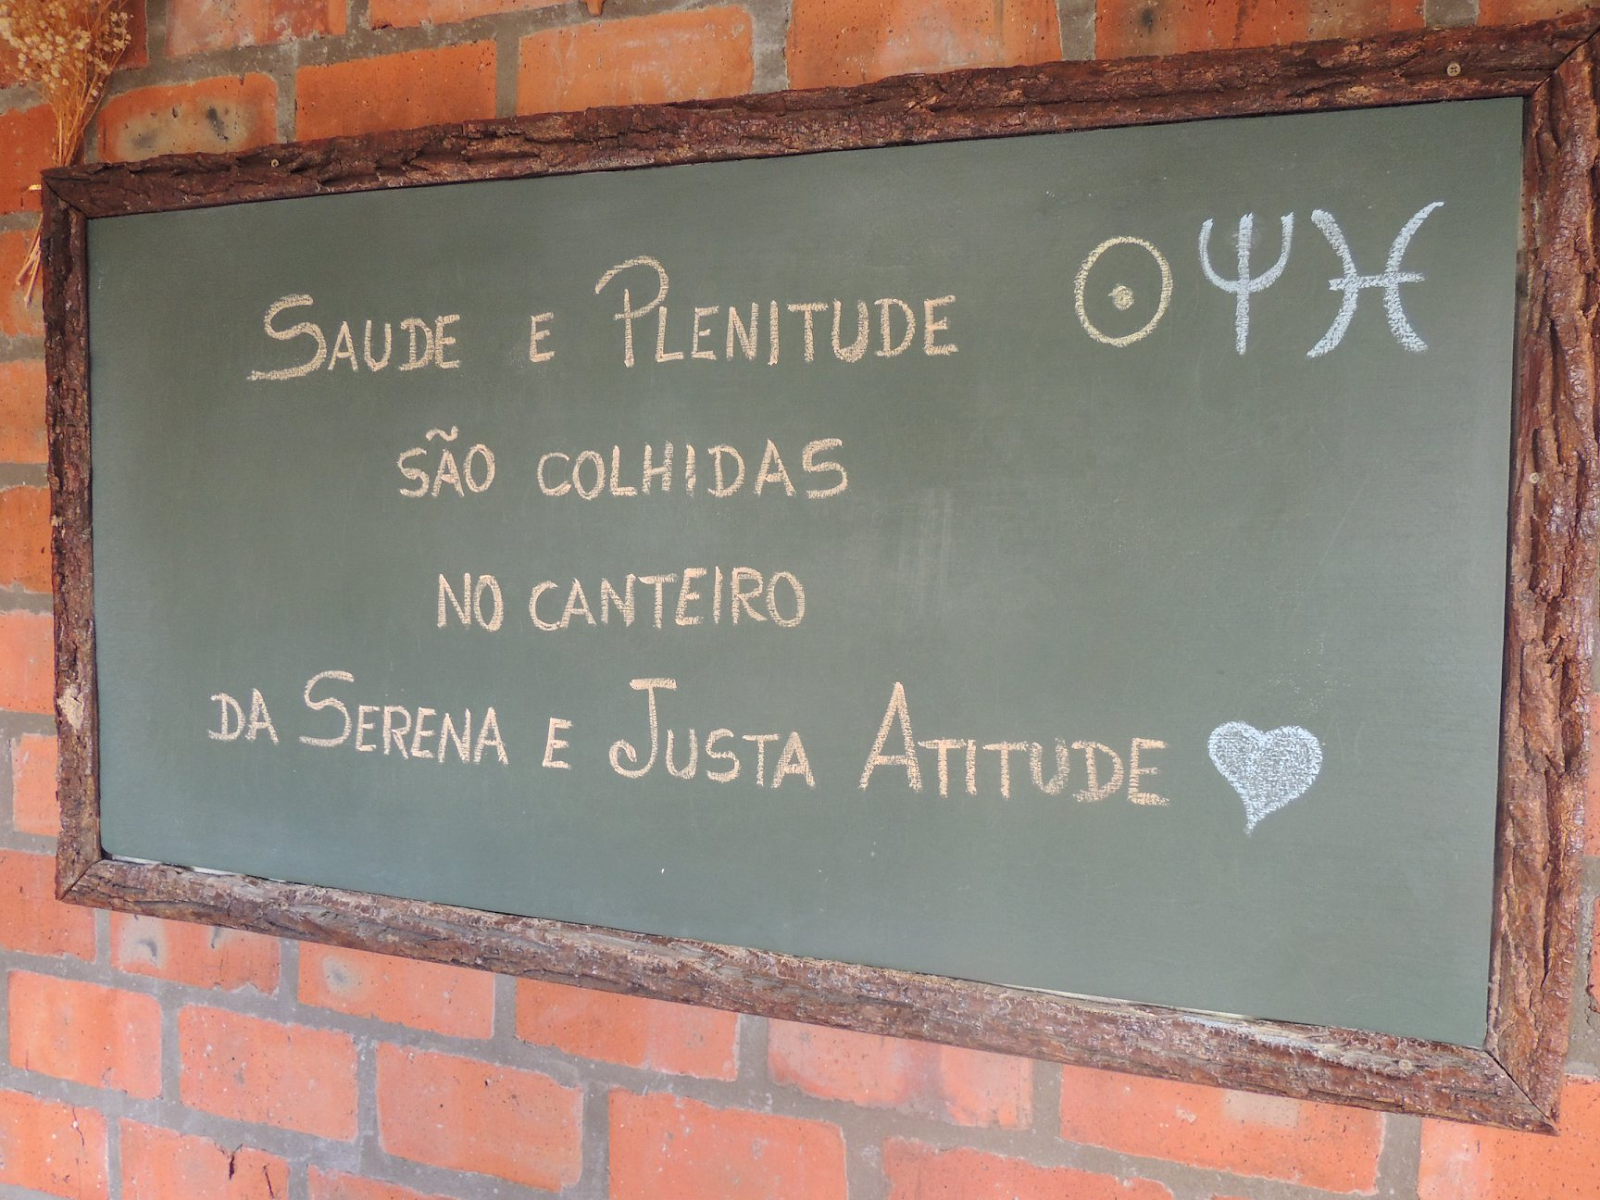 SAUDE E PLENITUDE ☉ Ψ ♓
SÃO COLHIDAS
NO CANTEIRO
DA SERENA E JUSTA ATITUDE